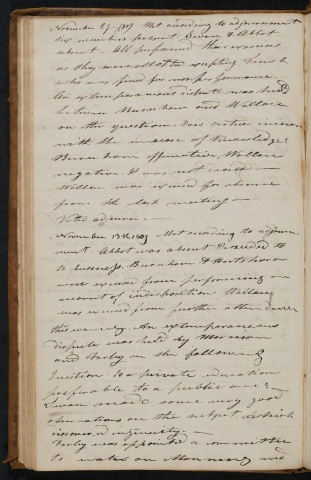 November 29 1809 Met according to adjournment
six members present, Swan & Abbot
absent. All performed the exercises
as they were allotted excepting
who was fined for nonperformance.
An extemporaneous dispute was held
between Burnham and Wallace
on the question, Does virtue increase
with the increase of Knowledge?
Burnham affirmative, Wallace
negative. It was not voted
Wallace was excused for absence
from the last meeting
Voted adjourn.
November 13th 1809 Met according to adjourn-
ment. Abbot was absent. Proceeded to
to business. Burnham & Hartshorn
were excused from performing on
account of indisposition Wallace
was excused from further attendance
this evening. An extemporaneous
dispute was held by
and Farley on the following
Question: Is a private education
preferable to a public one?
Swan made some very good
observations on the subject which
discovered ingenuity.
Farley was appointed a committee
to wait on and